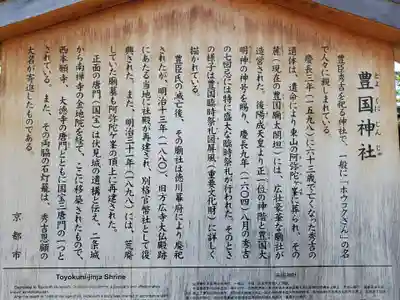 とよくに じんじゃ
豊国神社
豊臣秀吉を祀る神社で、一般に「ホウコクさん」の名
で人々に親しまれている。
慶長三年(一五九八)に六十三歳で亡くなった秀吉の
遺体は、遺命により東山の阿弥陀ヶ峯に葬られ、その
麓(現在の豊国廟太閤坦)には、広壮豪華な廟社が
造営された。後陽成天皇より正一位の神階と豊国大
明神の神号を賜り、慶長九年(一六〇四)八月の秀吉
の七回忌には特に盛大な臨時祭礼が行われた。そのとき
の様子は豊国臨時祭礼図屏風(重要文化財)に詳しく
描かれている。
豊臣氏の滅亡後、その廟社は徳川幕府により廃祀
されたが、明治十三年(一八八〇)、旧方広寺大仏殿跡
にあたる当地に社殿が再建され、別格官幣社として復
興された。また、明治三十一年(一八九八)には、荒廃
していた廟墓も阿弥陀ヶ峯の頂上に再建された。
正面の唐門(国宝)は伏見城の遺構と伝え、二条城
から南禅寺の金地院を経て、ここに移築されたもので、
西本願寺、大徳寺の唐門とともに国宝三唐門の一つと
されている。また、その両脇の石灯籠は、秀吉恩顧の
大名が寄進したものである。
京都市
Toyokuni-jinja Shrine